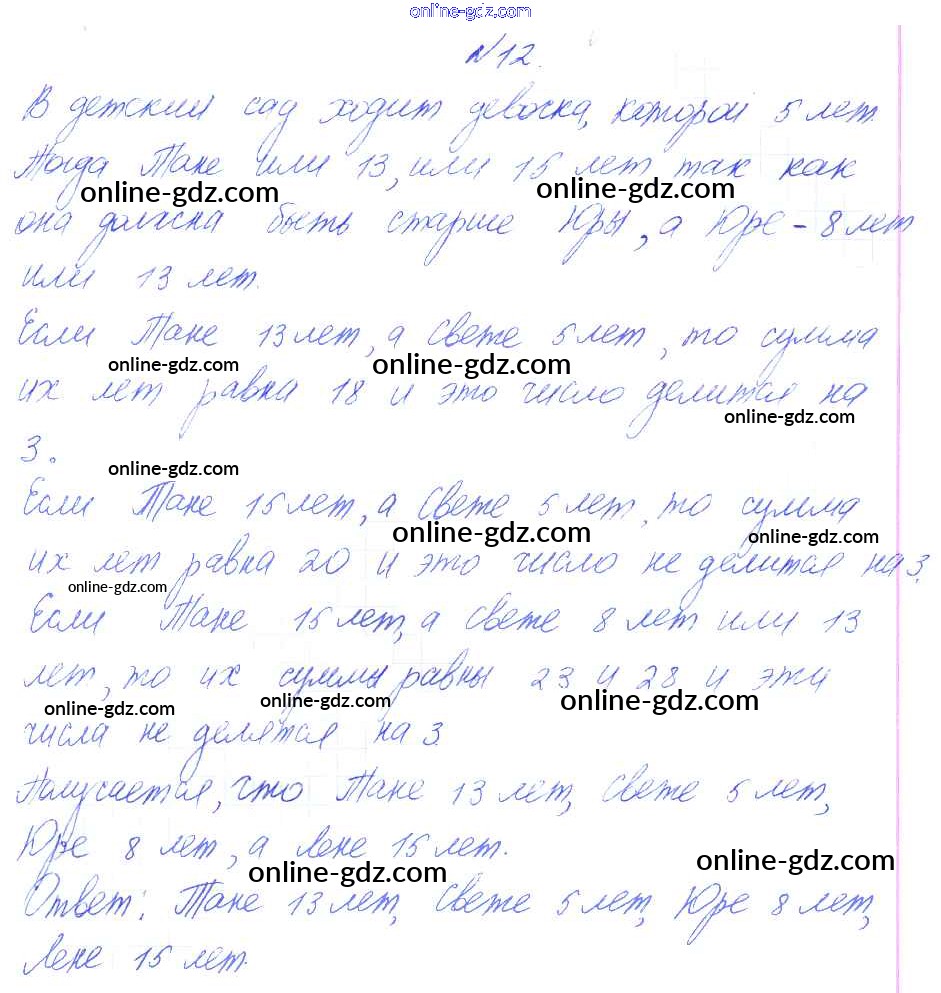 online-gdz.com
№12.
В детский сад ходит девочка, которой 5 лет.
Тогда Тане или 13, или 15 лет, так как
online-gdz.com online-gdz.com
она должна быть старше Юры, а Юре - 8 лет
или 13 лет.
Если Тане 13 лет, а Свете 5 лет, то сумма
online-gdz.com online-gdz.com
их лет равна 18 и это число делится на
online-gdz.com
3.
online-gdz.com
Если Тане 15 лет, а Свете 5 лет, то сумма
online-gdz.com online-gdz.com
их лет равна 20 и это число не делится на 3.
online-gdz.com
Если Тане 15 лет, а Свете 8 лет или 13
лет, то их суммы равны 23 и 28 и эти
online-gdz.com online-gdz.com online-gdz.com
числа не делятся на 3.
Получается, что Тане 13 лет, Свете 5 лет,
Юре 8 лет, а Лене 15 лет.
online-gdz.com online-gdz.com
Ответ: Тане 13 лет, Свете 5 лет, Юре 8 лет,
Лене 15 лет.